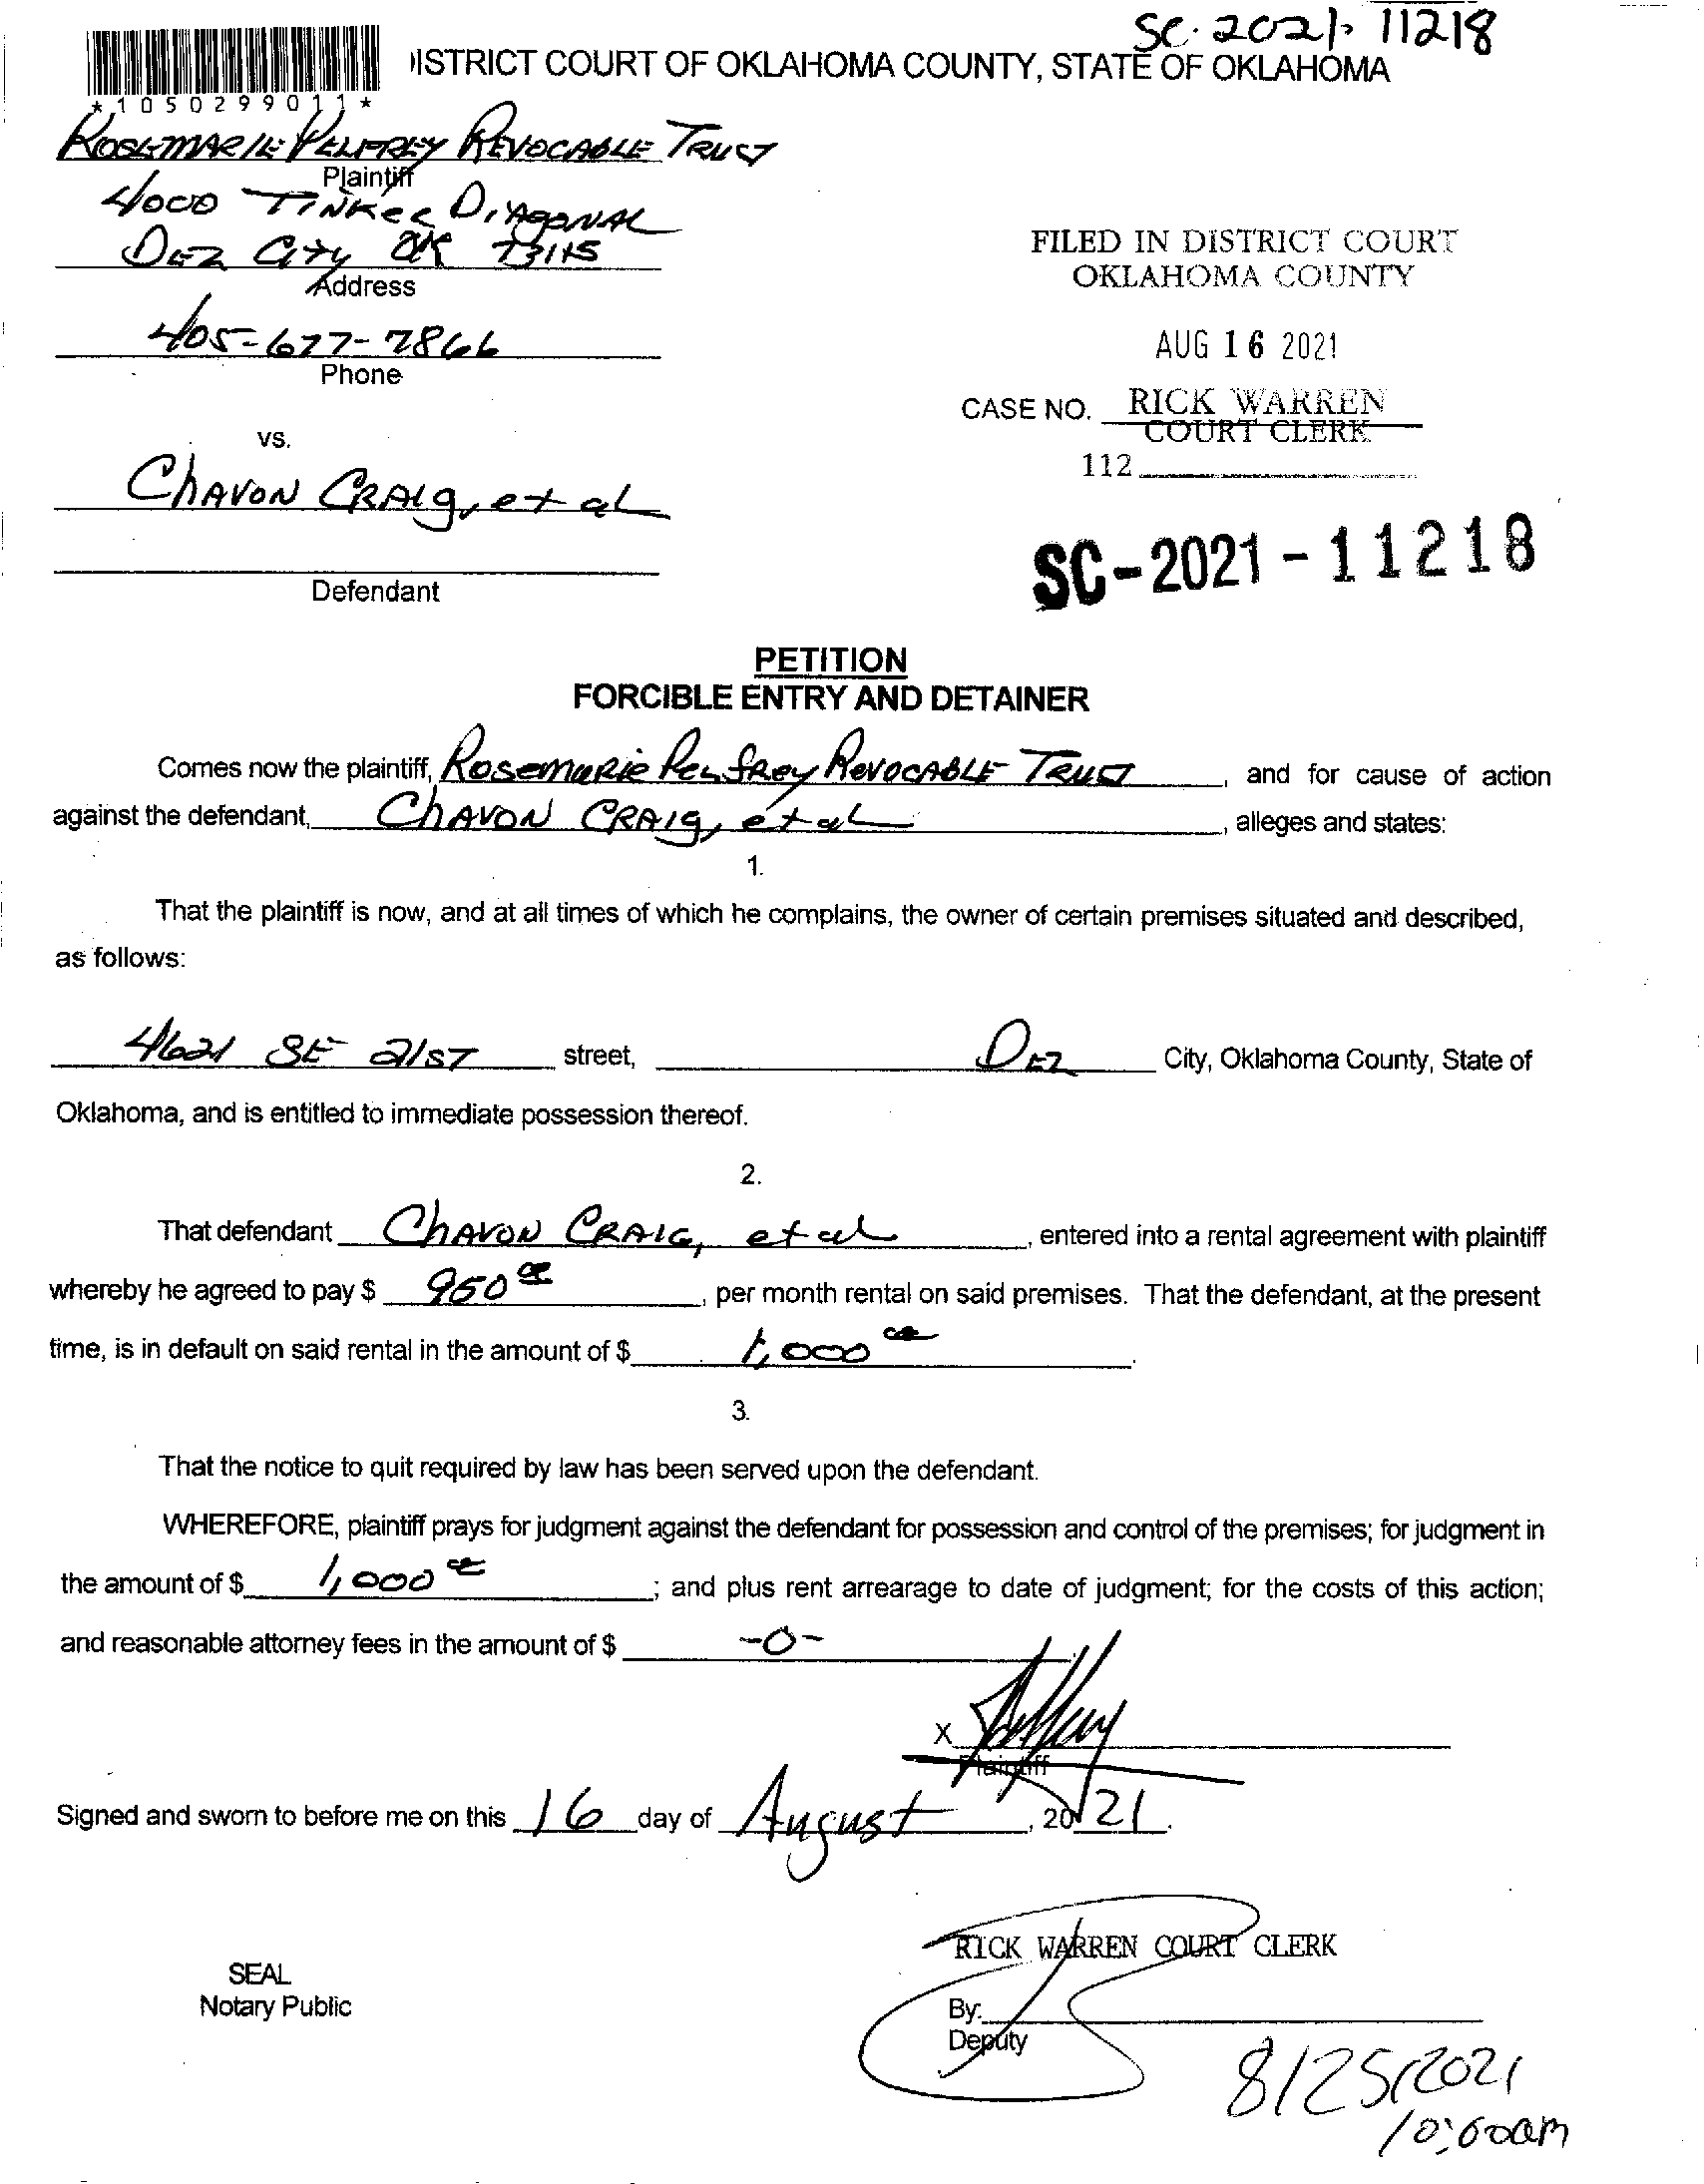 SC-2021-11218
ISTRICT COURT OF OKLAHOMA COUNTY, STATE OF OKLAHOMA
*1050299011*
ROSEMARIE PELFREY REVOCABLE TRUST
Plaintiff
4000 TINKER DIAGONAL
DEL CITY OK 73115
Address
405-677-7866
Phone
FILED IN DISTRICT COURT
OKLAHOMA COUNTY
AUG 16 2021
CASE NO. RICK WARREN
COURT CLERK
112
vs.
CHAVON CRAIG, et al
Defendant
SC-2021-11218
PETITION
FORCIBLE ENTRY AND DETAINER
Comes now the plaintiff, Rosemarie Pelfrey Revocable Trust, and for cause of action
against the defendant, CHAVON CRAIG, et al, alleges and states:
1.
That the plaintiff is now, and at all times of which he complains, the owner of certain premises situated and described,
as follows:
4621 SE 21ST street, DEL City, Oklahoma County, State of
Oklahoma, and is entitled to immediate possession thereof.
2.
That defendant CHAVON CRAIG, et al, entered into a rental agreement with plaintiff
whereby he agreed to pay $ 950 00, per month rental on said premises. That the defendant, at the present
time, is in default on said rental in the amount of $ 1,000 00.
3.
That the notice to quit required by law has been served upon the defendant.
WHEREFORE, plaintiff prays for judgment against the defendant for possession and control of the premises; for judgment in
the amount of $ 1,000 00; and plus rent arrearage to date of judgment; for the costs of this action;
and reasonable attorney fees in the amount of $ -0-.
X
Plaintiff
Signed and sworn to before me on this 16 day of August, 2021.
RICK WARREN COURT CLERK
SEAL
Notary Public
By:
Deputy
8/25/2021
10:00am